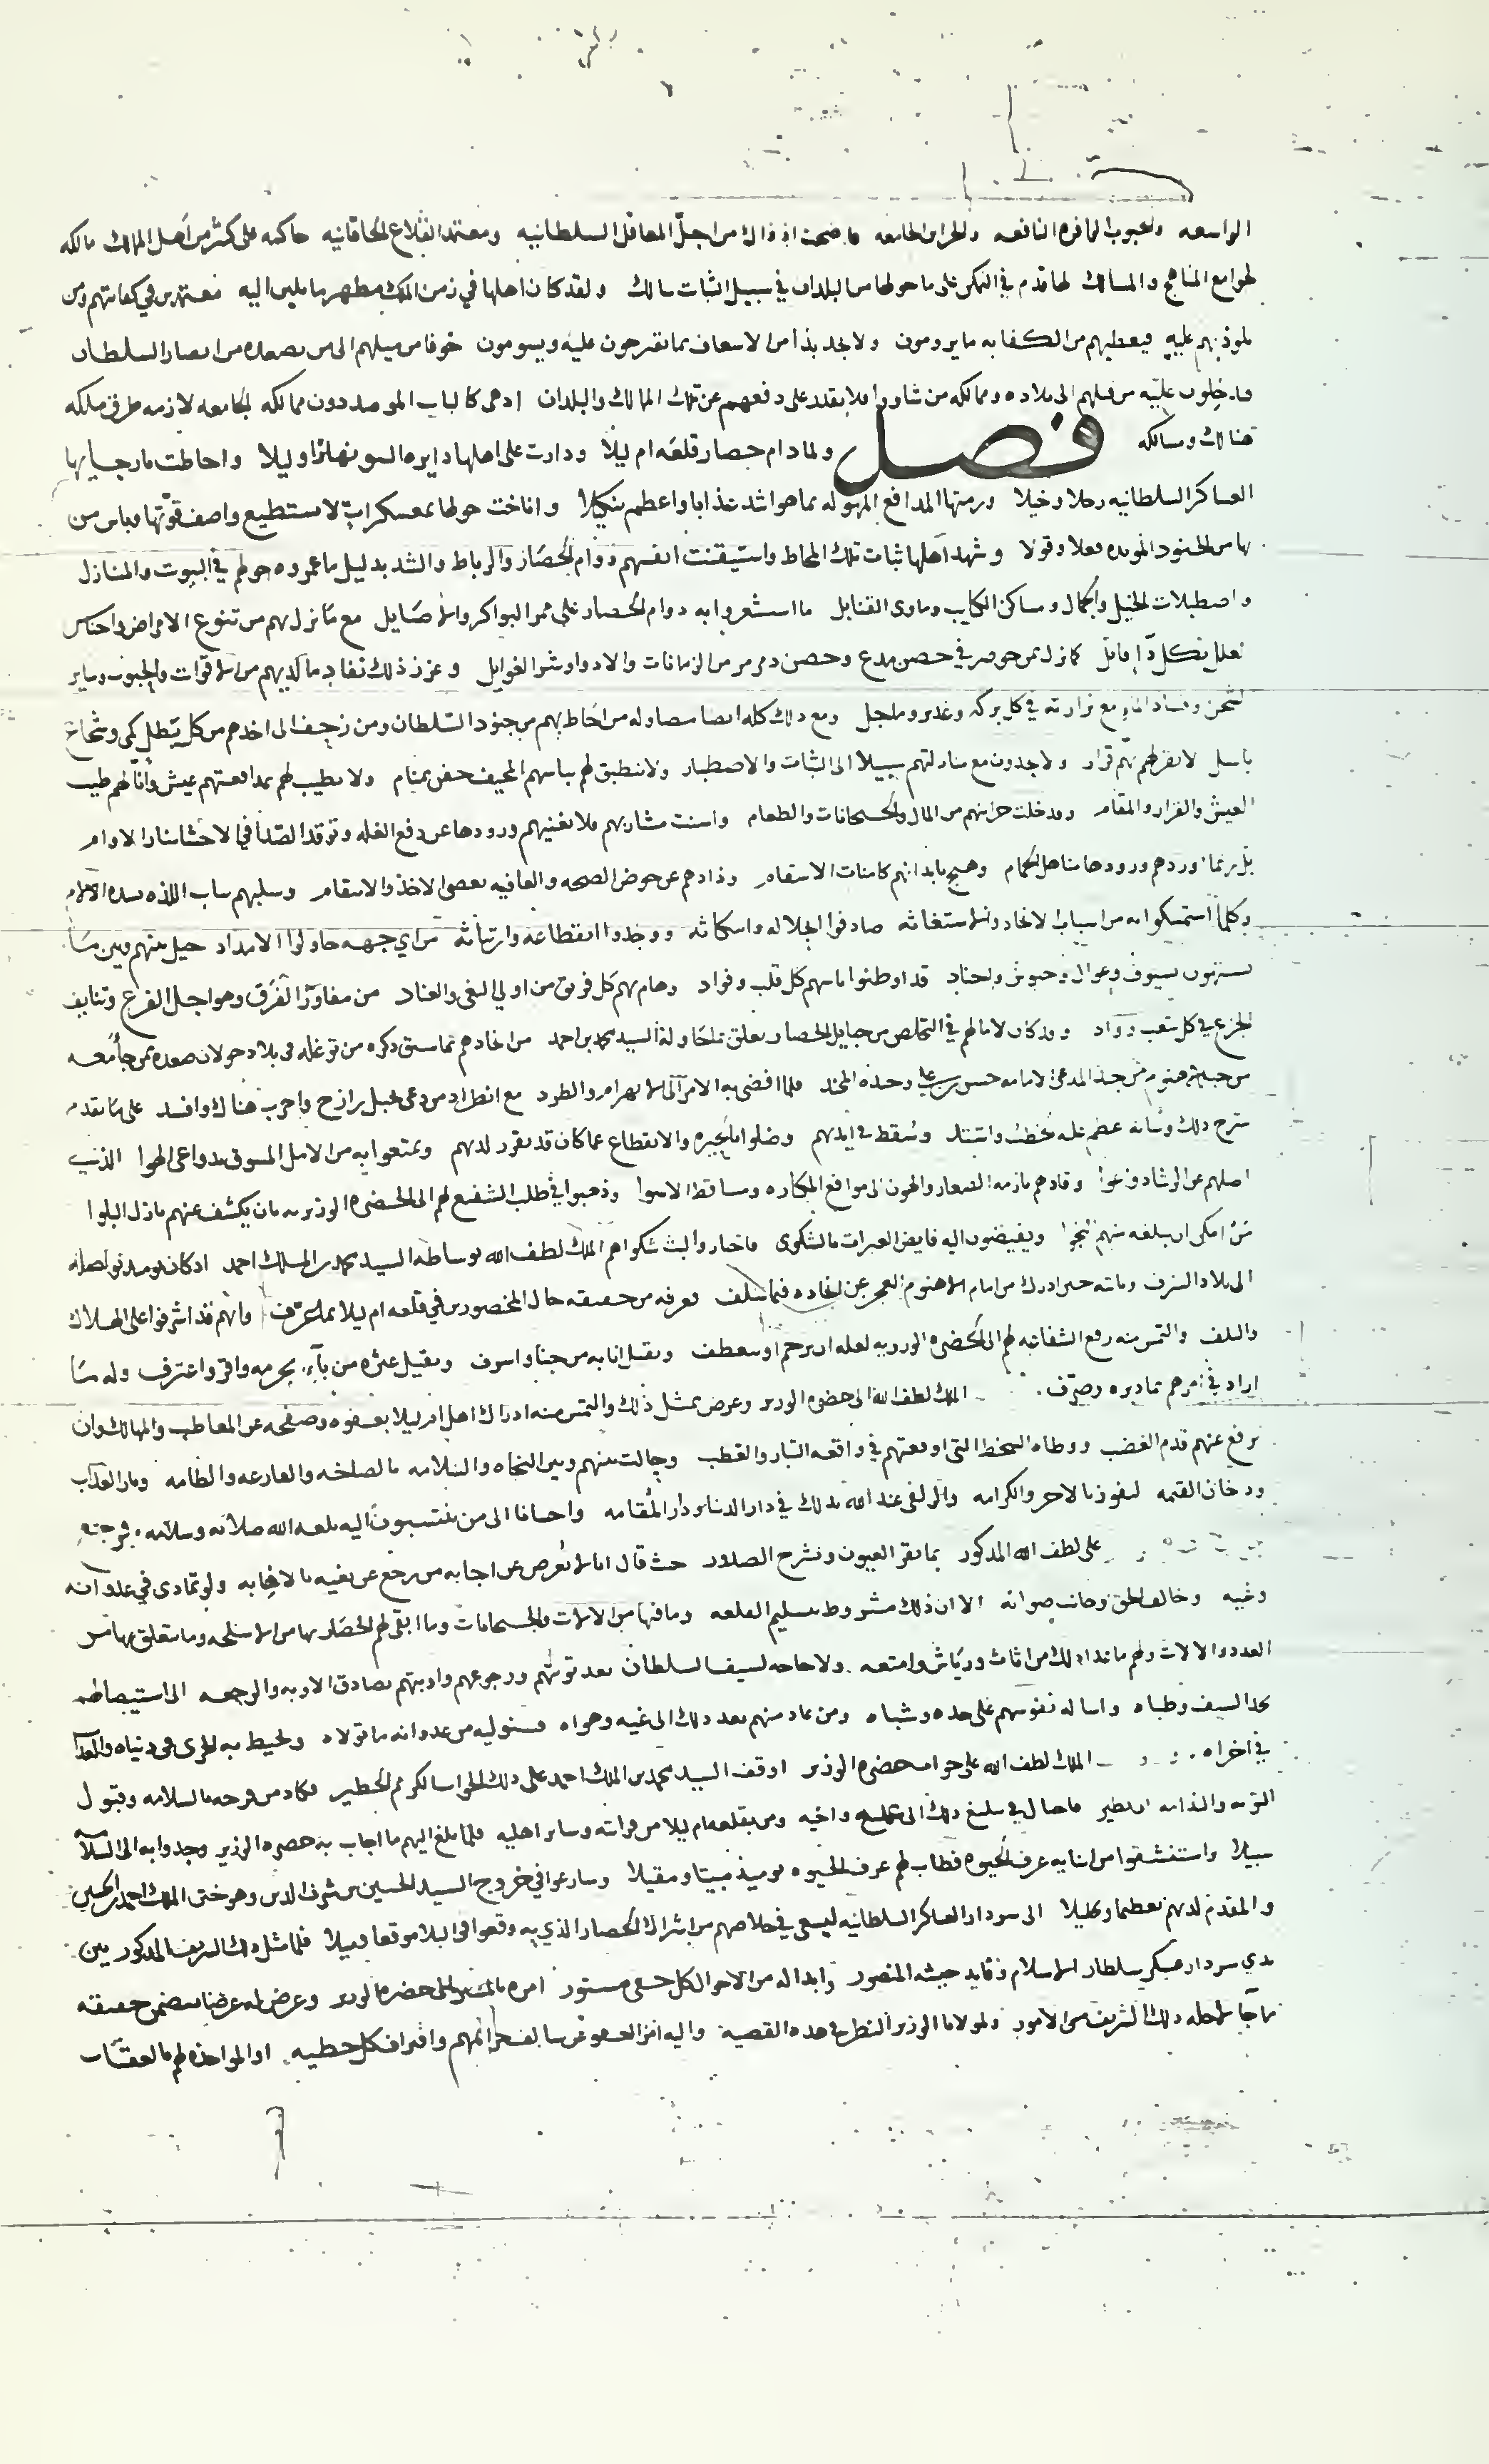 الواسعه والحبوب الوافره النافعه والخزاين الجامعه فاضحت اذ ذاك من اجل المعاقل السلطانيه ومعتمد القلاع الخاقانيه حاكمه على كثير من اهل الممالك مالكه
لجوامع المناهج والمسالك لها قدم في التمكن على ما حولها من البلدان في سبيل الثبات سالك ولقد كان اهلها في زمن الملك مطهر مايلين اليه معتمدين في كفايتهم ومن
يلوذ بهم عليه فيعطيهم من الكفايه ما يرومون ولا يجد بدا من الاسعاف بما يقترحون عليه ويسومون خوفا من ميلهم الى من يصمده من انصار السلطان
فيدخلون عليه من قبلهم الى بلاده وممالكه من شاوا فلا يقدر على دفعهم عن تلك الممالك والبلدان اذ هي كالباب الموصد دون ممالكه الجامعه لازمه طرفي ملكه
هنالك ومسالكه فصل ولما دام حصار قلعه ام ليلا ودارت على اهلها دايره السو نهارا وليلا واحاطت بارجايها
العساكر السلطانيه رجلا وخيلا ورمتها المدافع المهوله بما هو اشد عذابا واعظم تنكيلا واناخت حولها بمعسكرات لا يستطيع واصف قوتها وباس من
بها من الجنود المويده فعلا وقولا وشهد اهلها ثبات تلك المحاط واستيقنت انفسهم دوام الحصار والرباط والشد بدليل ما عمروه حولهم في البيوت والمنازل
واصطبلات الخيل والجمال ومساكن الكتايب وماوى القنابل ما استشعروا به دوام الحصار على ممر البواكر والاصايل مع ما نزل بهم من تنوع الامراض واجناس
لشحن وفساد الماء مع نزارته في كل بركه وغدير وماجل ومع ذلك كله ايضا مصاوله من احاط بهم من جنود السلطان ومن زحف الى اخذهم من كل بطل كمي وشجاع
باسل لا يقر لهم ثم قرار ولا يجدون مع منازلتهم سبيلا الى الثبات والاصطبار ولا ينطبق لهم بباسهم المخيف جفن بمنام ولا يطيب لهم بمدافعتهم عيش وانا لهم طيب
العيش والقرار والمقام وقد خلت خزاينهم من المال والجبخانات والطعام واسنت مشاربهم فلا يغنيهم ورودها عن دفع الغله وتوقد الصدا في الاحشا بنار الاوام
بل ربما اوردهم ورودها مناهل الحمام وهيج بابدانهم كامنات الاسقام وذادهم عن حوض الصحه والعافيه بعصي الاخذ والانتقام وسلبهم ثياب اللذه
وكلما استمسكوا به من اسباب الانجاد والاستغاثه صادفوا انحلاله وانتكاثه ووجدوا انقطاعه وارتثاثه من اي جهه حاولوا الامداد حيل بينهم وبين ما
يشتهون بسيوف وعوال وجيوش واجناد قد اوطنوا باسهم كل قلب وفواد وهام بهم كل فريق من اولي البغي والعناد من مفاوز الفرق وهواجل الفزع وتنايف
الجزع في كل شعب وواد وقد كان لامالهم في التخلص من حبايل الحصار تعلق بمحاوله السيد محمد بن احمد من انجادهم بما سبق ذكره من توغله في بلاد خولان صعده بمن جا معه
من جبل هنوم من جند المدعي للامامه حسن بن علي وحده المحتد فلما افضى به الامر الى الانهزام والطرد مع انطراد من دعى بجبل رازح واخرب هناك وافسد على ما تقدم
شرح ذلك وشانه عظم عليهم الخطب واشتد وسقط في ايديهم وضلوا بالحيره والانقطاع عما كان قد تقرر لديهم وتمتعوا به من الامل المسوق بدواعي الهوا الذي
اضلهم عن الرشاد وغوا وقادهم بازمه الصغار والهون الى مواقع المكاره ومساقط الاسوا وذهبوا في طلب الشفيع لهم الى الحضره الوزيريه بان يكشف عنهم نازل البلوا
من امكن ان يبلغه منهم نجوا ويفيضون اليه فايض العبرات بالشكوى فاختاروا لبث شكواهم الملك لطف الله بوساطه السيد محمد بن الملك احمد اذ كان يوميذ
الى بلاد الشرف وما ته حين ادرك من امام الاهنوم العجز عن انجاده فيما سلف يعرفه من حقيقه حال المحصورين في قلعه ام ليلا بما عرف وانهم قد اشرفوا على الهلاك
والتلف والتمس منه رفع الشفاعه لهم الى الحضره الوزيريه لعله ان يرحم او يتعطف ويقبل انابه من جنا واسرف ويقيل عثره من باء بجرمه واقر واعترف وله ما
اراد في امرهم بما دبره وصرف الملك لطف الله الى حضره الوزير وعرض بمثل ذلك والتمس منه ادراك اهل ام ليلا بعفوه وصفحه عن المعاطب والمهالك وان
يرفع عنهم قدم الغضب ووطاه السخط التي اوقعتهم في واقعه التبار والعطب وحالت بينهم وبين النجاه والسلامه بالصاخه والقارعه والطامه ونار العذاب
ودخان القتمه ليفوز بالاجر والكرامه والزلفى عند الله بذلك في دار الدنيا ودار المقامه واحسانا الى من ينتسبون اليه بلغه الله صلاته وسلامه
على لطف الله المذكور بما يقر العيون ويشرح الصدور حيث قال انا لا نعرض عن اجابه من رجع عن بغيه بالانابه ولو تمادى في عدوانه
وغيه وخالف الحق وجانب صوابه الا ان ذلك مشروط بتسليم القلعه وما فيها من الالات والجبخانات وما ابقى لهم الحصار بها من الاسلحه وما يتعلق بها من
العدد والالات ولهم ما عدا ذلك من اثاث ورياش وامتعه ولا حاجه لسيف السلطان بعد توبتهم ورجوعهم واوبتهم بصادق الاوبه والرجعه الى استيصالهم
بحد السيف وظباه واساله نفوسهم على حده وشباه ومن عاد منهم بعد ذلك الى غيه وهواه فسنوليه من عدوانه ما تولاه ونحيط به الخزي في دنياه والعذاب
في اخراه الملك لطف الله على جواب حضره الوزير اوقف السيد محمد بن الملك احمد على ذلك الجواب الكريم الخطير فكاد من فرحه بالسلامه وقبول
التوبه والندامه ان يطير فاحتال في تبليغ ذلك الى واخيه ومن بقلعه ام ليلا من قرابته وساير اهليه فلما بلغ اليهم ما اجاب به حضره الوزير وجدوا به الى السلامه
سبيلا واستنشقوا من انبايه عرف الحيوه فطاب لهم عرف الحيوه يوميذ مبيتا ومقيلا وسارعوا في خروج السيد الحسين بن شرف الدين وهو ختن الملك احمد بن الحسين
والمقدم لديهم تعظيما وتجليلا الى سردار العساكر السلطانيه ليسعى في خلاصهم من اشراك الحصار الذي به وقعوا في البلا موقعا وبيلا فلما مثل ذلك الشريف المذكور بين
يدي سردار عسكر سلطان الاسلام وقايد جيشه المنصور وابدا له من الاحوال كل خفي مستور امره بالمسير الى حضره الوزير وعرض له عرضا يتضمن حقيقه
ما جا لاجله ذلك الشريف من الامور ولمولانا الوزير النظر في هذه القصيه واليه امر العفو عن سالف جرايمهم واقتراف كل خطيه او المواخذه لهم بالعقاب